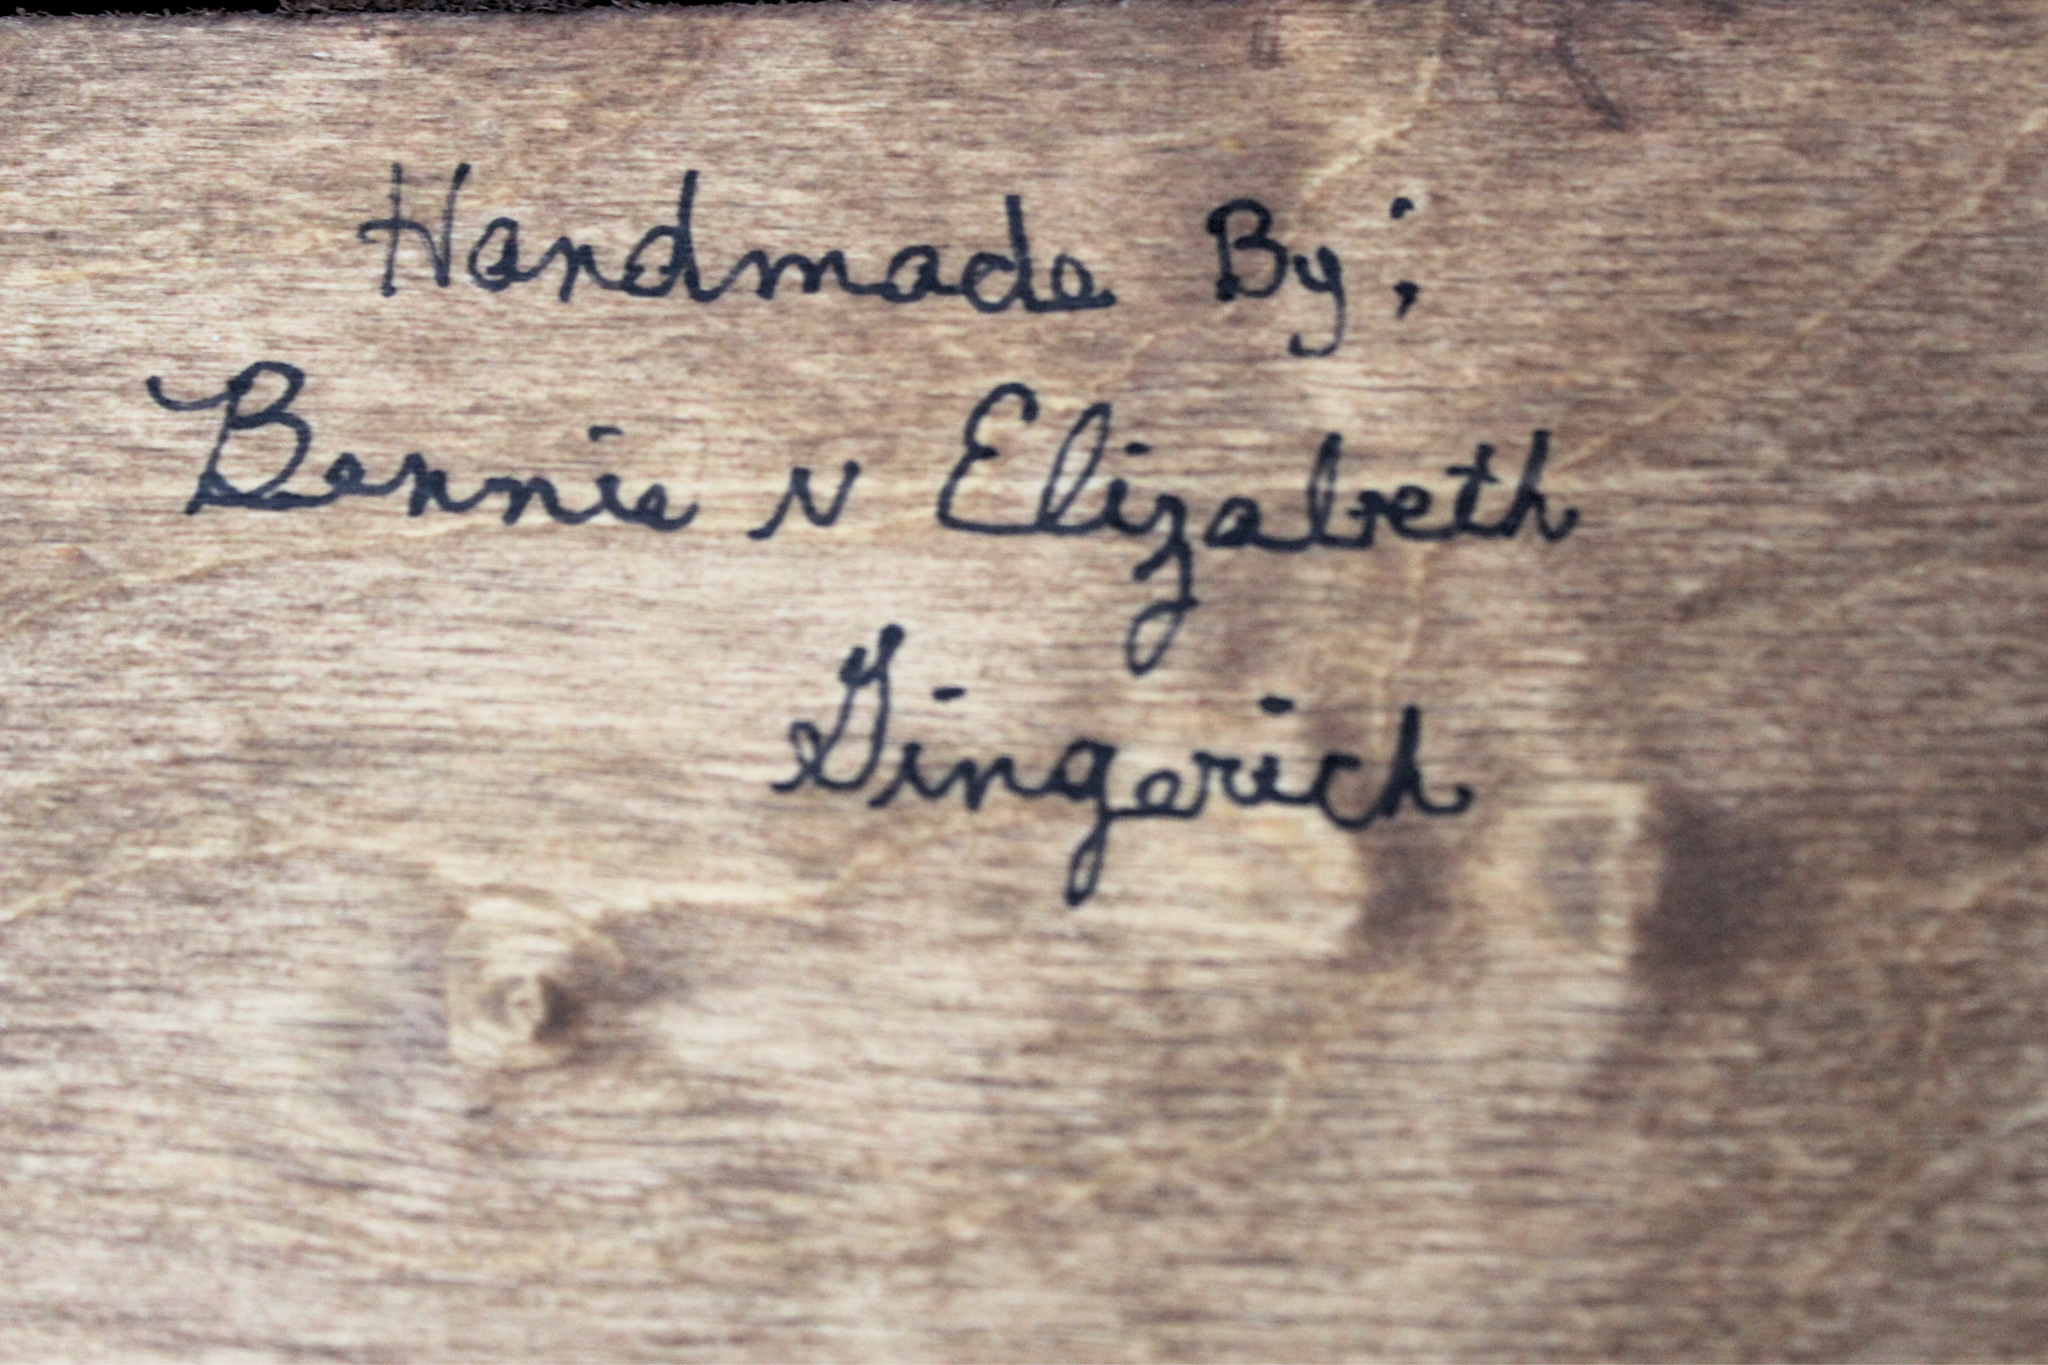 Handmade By;
Bennie N Elizabeth
Gingerich